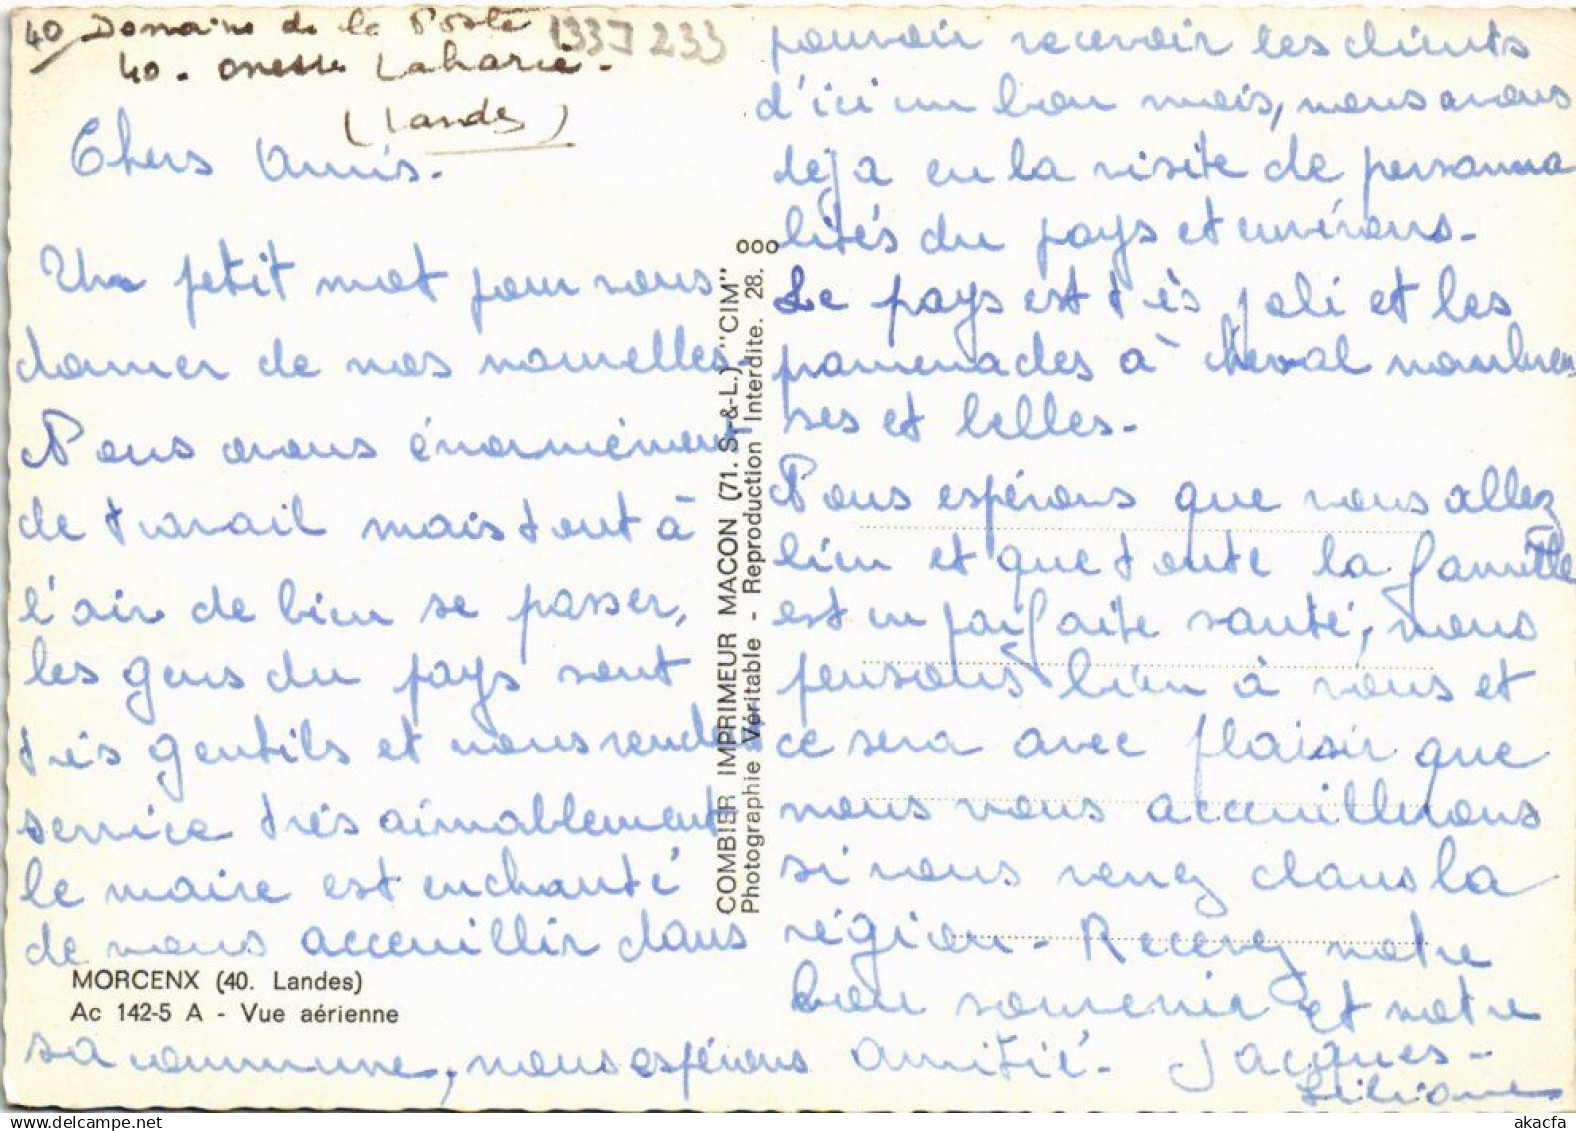 40 Domaine de la Poste
1337 233
40. onesse Laharie.
(Landes)
Chers Amis.
Un petit mot pour vous
donner de nos nouvelles.
Nous avons énormément
de travail mais tout à
l'air de bien se passer,
les gens du pays sont
très gentils et nous rendent
service très aimablement
le maire est enchanté
de nous acceuillir dans
MORCENX (40. Landes)
Ac 142-5 A - Vue aérienne
sa commune, nous espérons
COMBIER IMPRIMEUR MACON (71. S.-&-L.) "CIM"
Photographie Véritable - Reproduction Interdite. 28.
pouvoir recevoir les clients
d'ici un bon mois, nous avons
déja eu la visite de personna
lités du pays et environs.
Le pays est très joli et les
promenades à cheval nombreu
ses et belles.
Nous espérons que vous allez
bien et que toute la famille
est en parfaite santé, nous
pensons bien à vous et
ce sera avec plaisir que
nous vous acceuillerons
si vous venez dans la
région. Recevez notre
bon souvenir et notre
Amitié. Jacques -
Liliane
www.delcampe.net
akacfa